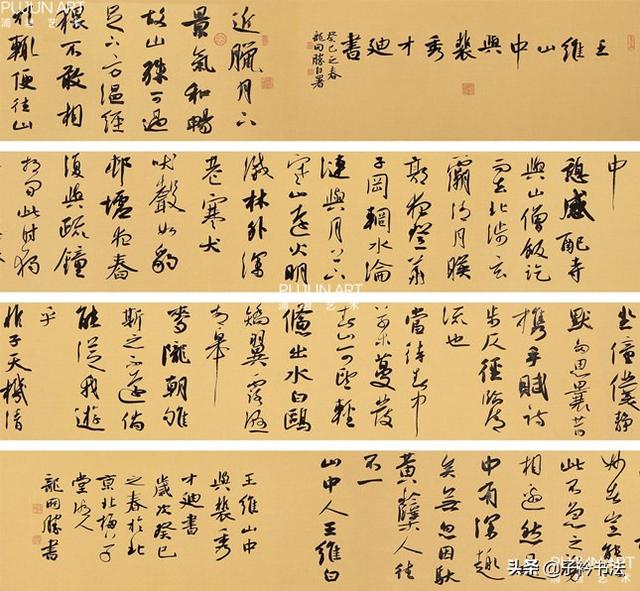 王維山中與裴秀才迪書
癸巳之春
龍開勝自署
近臘月下
景氣和暢
故山殊可過
足下方温經
猥不敢相
煩輒便往山
中
憩感配寺
與山僧飯訖
而去北涉玄
灞清月映
郭夜登華
子岡輞水淪
漣與月上下
寒山遠火明
滅林外深
巷寒犬
吠聲如豹
邨墟夜舂
復與疏鐘
相間此時獨
坐僮僕靜
默多思曩昔
攜手賦詩
步仄徑臨清
流也
當待春中
草木蔓發
春山可望輕
鯈出水白鷗
矯翼露濕
青皋
麥隴朝雊
斯之不遠倘
能從我遊
乎
非子天機清
妙者豈能以
此不急之務
相邀然是
中有深趣
矣無忽因馱
黃蘗人往
不一
山中人王維白
王維山中
與裴秀
才迪書
歲次癸巳
之春於北
京北
堂
龍開勝書
PUJUN ART
浦君艺术
PUJUN ART
浦君艺术
PUJUN ART
头条 @子衿书法